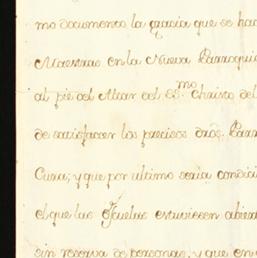 mo documento la gracia que se hac
Maestras en la Nueva Parroqui
al pie del Altar del S.mo Christo del
de satisfacer los precisos dros. Parr
Cura; y que por ultimo seria condici
el que las Escuelas estuviesen abier
sin reserva de personas, y que en